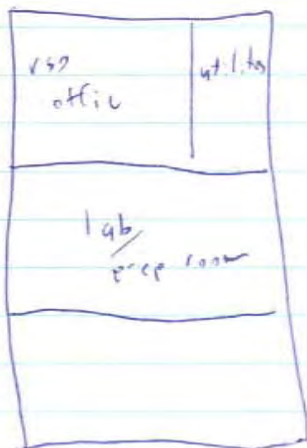 RSO
office
utilities
lab/
prep room